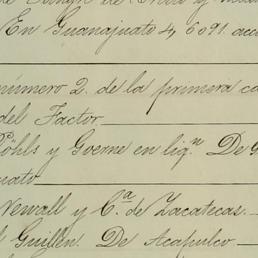 En Guanajuato 4, 6091. acc
número 2. de la primera ca
del Factor
Pöhls y Goerne en liq.n De G
uato
Newall y C.a de Zacatecas.
Guillén. De Acapulco